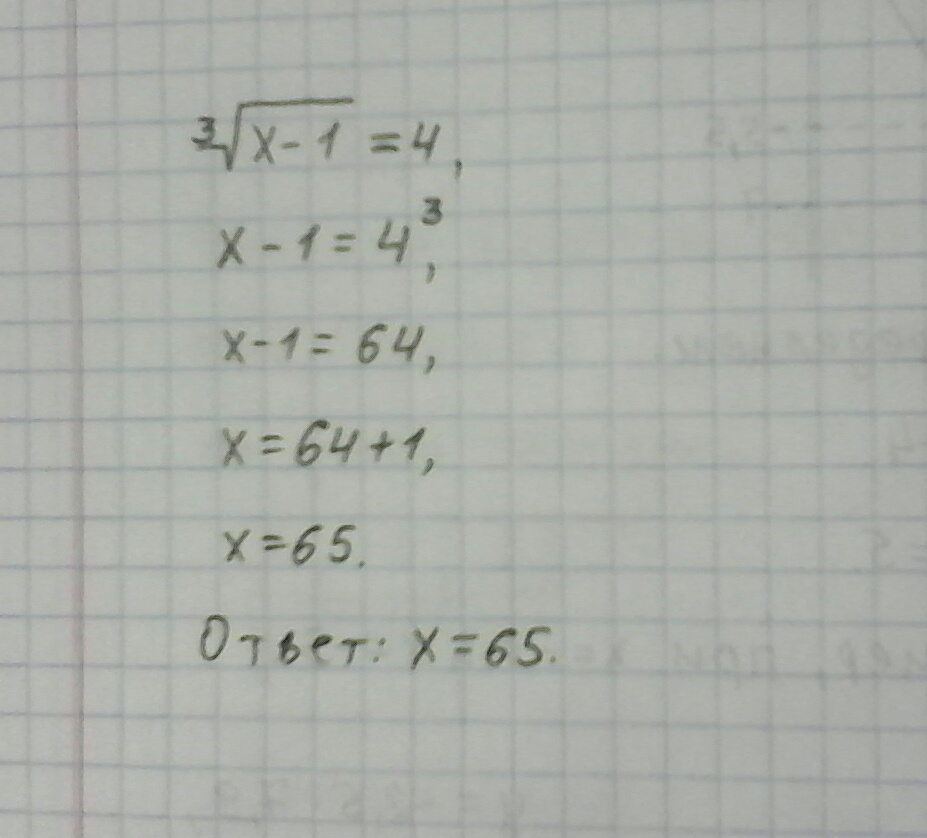 ³√(x-1) = 4,
x - 1 = 4³,
x - 1 = 64,
x = 64 + 1,
x = 65.
Ответ: x = 65.